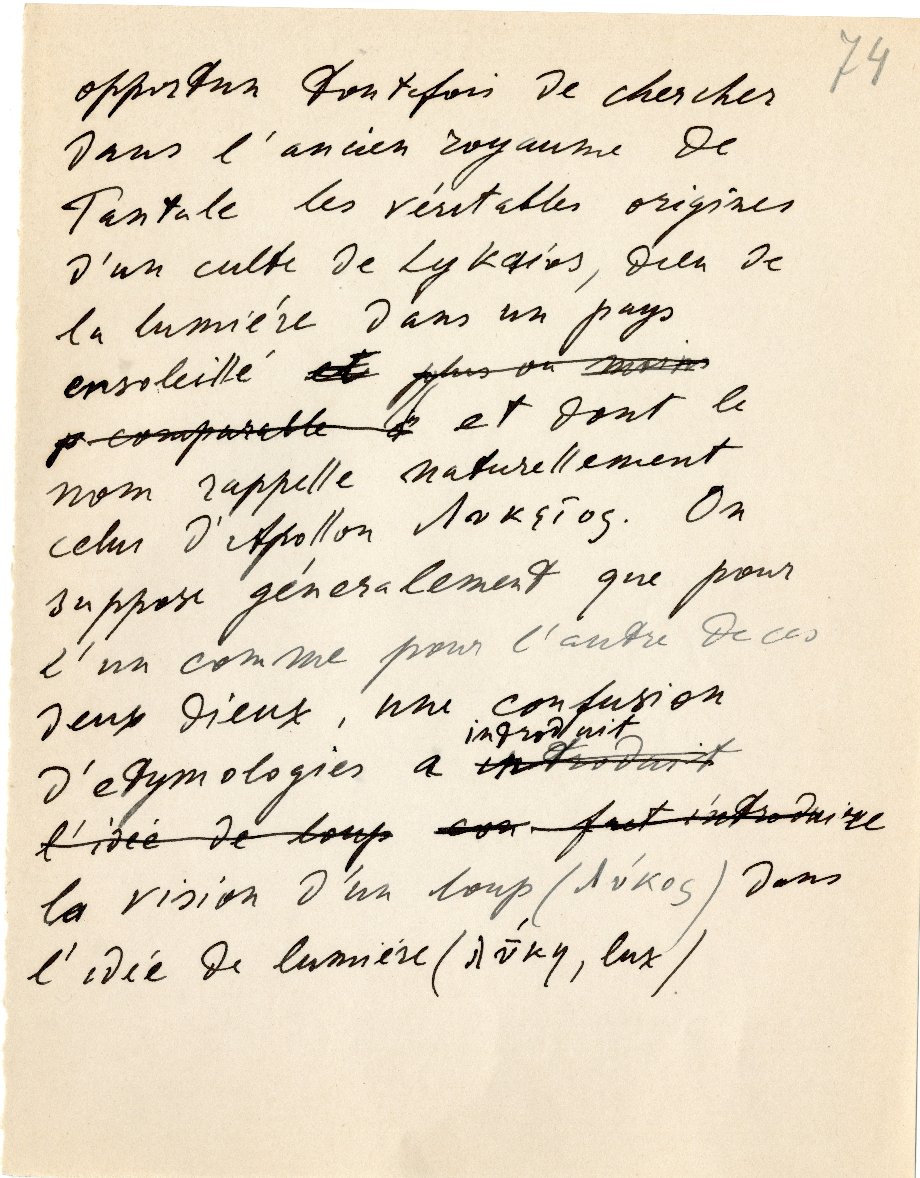 74
opportun toutefois de chercher
dans l'ancien royaume de
Tantale les véritables origines
d'un culte de Lykaios, dieu de
la lumiére dans un pays
ensoleillé et plus ou moins
p comparable à et dont le
nom rappelle naturellement
celui d'Apollon Λυκηῖος. On
suppose généralement que pour
l'un comme pour l'autre de ces
deux dieux, une confusion
introduit
d'etymologies a introduit
l'idée de loup con fait introduire
la vision d'un loup (λύκος) dans
l'idée de lumiére (λύ̄κη, lux)